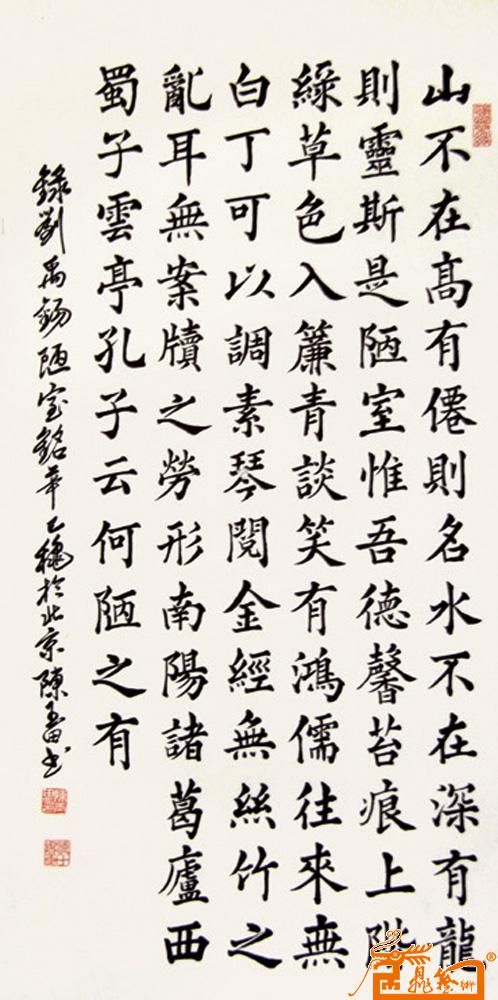 山不在髙有僊則名水不在深有龍
則靈斯是陋室惟吾德馨苔痕上階
綠草色入簾青談笑有鴻儒往來無
白丁可以調素琴閱金經無絲竹之
亂耳無案牘之勞形南陽諸葛廬西
蜀子雲亭孔子云何陋之有
錄劉禹錫陋室銘穐於北京陳玉田书